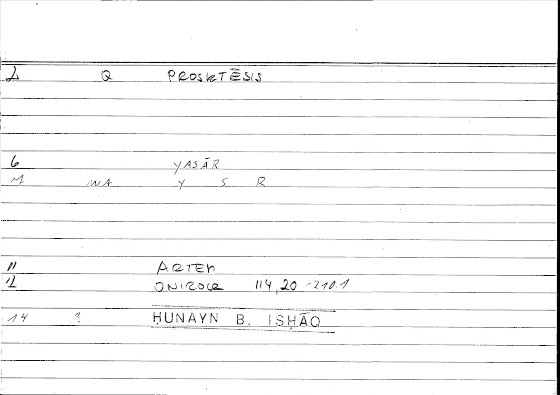 2 Q PROSKTĒSIS
6 YASĀR
M NA Y S R
11 ARTEM
12 ONIROCR 114,20 - 210.1
14 ? ḤUNAYN B. ISḤĀQ